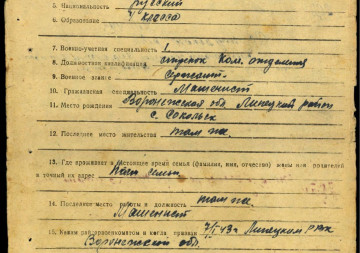 5. Национальность русский
6. Образование 7 классов
7. Военно-учетная специальность 1
8. Должностная квалификация стрелок Ком. отделения
9. Военное звание Сержант
10. Гражданская специальность Машинист
11. Место рождения Воронежская обл. Липецкий район
с. Сокольск
12. Последнее место жительства там же
13. Где проживает в настоящее время семья (фамилия, имя, отчество) жены или родителей
и точный их адрес Нет семьи
14. Последнее место работы и должность там же
Машинист
15. Каким райвоенкоматом и когда призван 7/I 43 г. Липецким РВК
Воронежской обл.